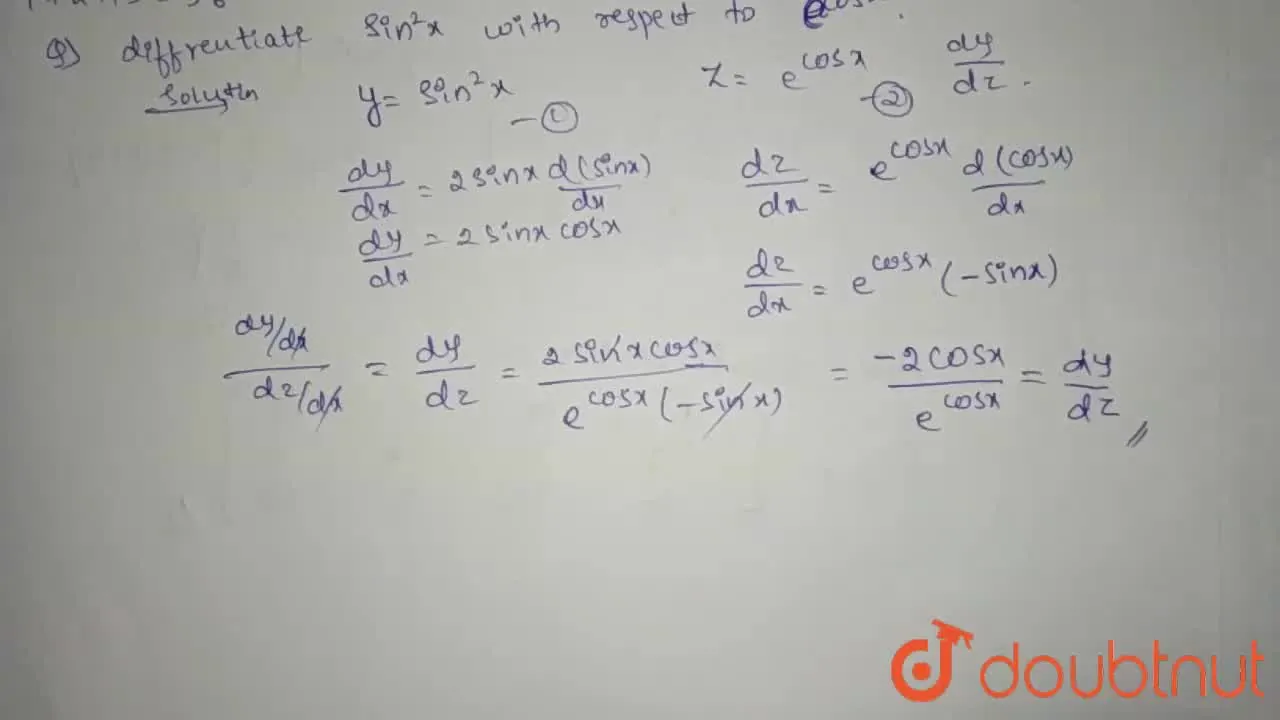 Q) diffrentiate sin²x with respect to e^cosx.
Solutin y = sin²x -① z = e^cosx -② dy/dz.
dy/dx = 2 sinx d(sinx)/dx dz/dx = e^cosx d(cosx)/dx
dy/dx = 2 sinx cosx dz/dx = e^cosx (-sinx)
(dy/dx)/(dz/dx) = dy/dz = 2 sinx cosx / e^cosx (-sinx) = -2cosx / e^cosx = dy/dz //
doubtnut